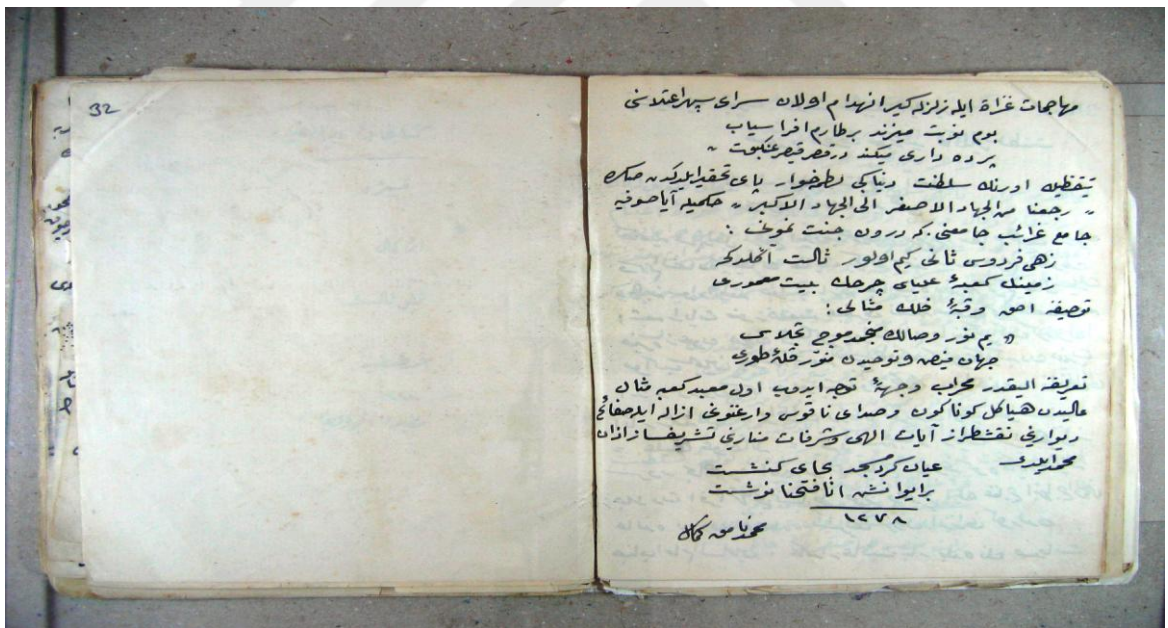 32
مهاجمات غزاة ايله زلزله كير انهدام اولان سراى سپهر اعتلاسنى
بوم نوبت ميزند بر طارم افراسياب
پرده دارى ميكند در قصر قيصر عنكبوت
تيقظيله اورنك سلطنت دنيايى پاى تحقير ايلدكدن صكره
رجعنا من الجهاد الاصغر الى الجهاد الاكبر حكميله آياصوفيه
جامع غرائب جامعنى كه درون جنت
زهى فردوس ثانى كيم اولور ثالث آكلدكجه
زمينك كعبهٔ علياى چرخك بيت معمورى
توصيفه احق وقبهٔ فلك مثالى :
يم نور وصالك منجمد موج تجلاسى
جهان فيض وتوحيدن منور قلهٔ طورى
تعريفه اليقدر محراب وجههٔ توجه ايدوب اول معبد كعبه مثال
عاليدن هياكل كوناكون وصداى ناقوس وارغنونى ازاله ايله
ديوارينى نقشطراز آيات الهى وشرفات منارينى تشريفساز اذان
محمد ايلدى
عيان كرد مسجد بجاى كنشت
بر ايوانش انا فتحنا نوشت
١٢٧٨
محمد نامق كمال